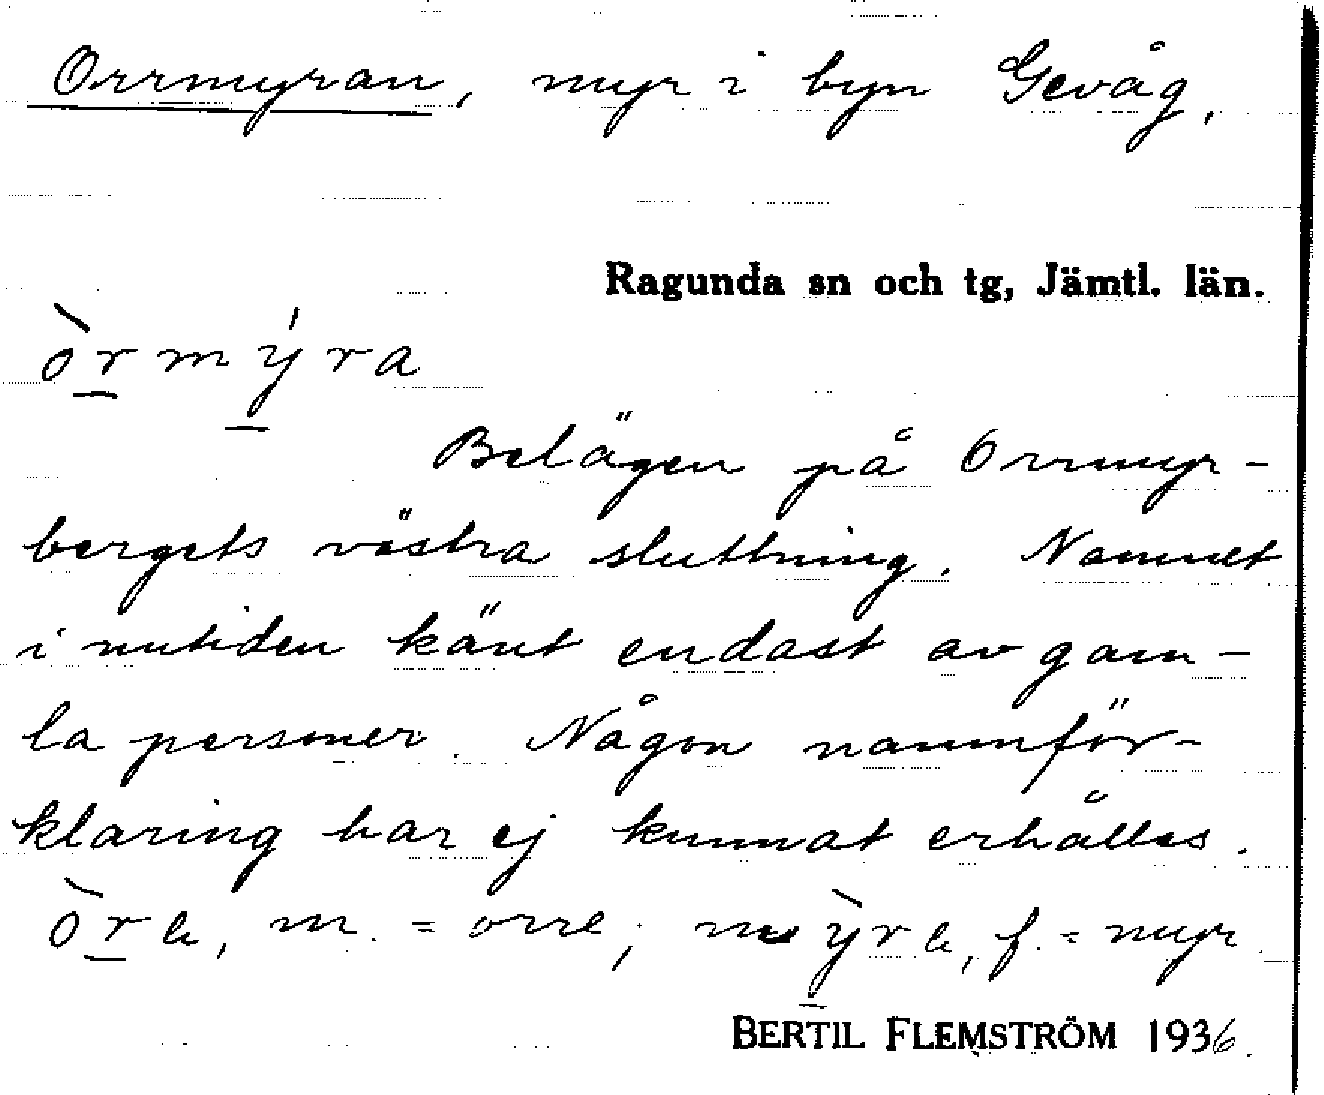 Orrmyran, myr i byn Gevåg.
Ragunda sn och tg, Jämtl. län.
òr̲mý̲ra
Belägen på Orrmyr-
bergets västra sluttning. Namnet
i nutiden känt endast av gam-
la personer. Någon namnför-
klaring har ej kunnat erhållas.
òr̲a, m. = orre; mỳ̲ra, f. = myr
BERTIL FLEMSTRÖM 1936.